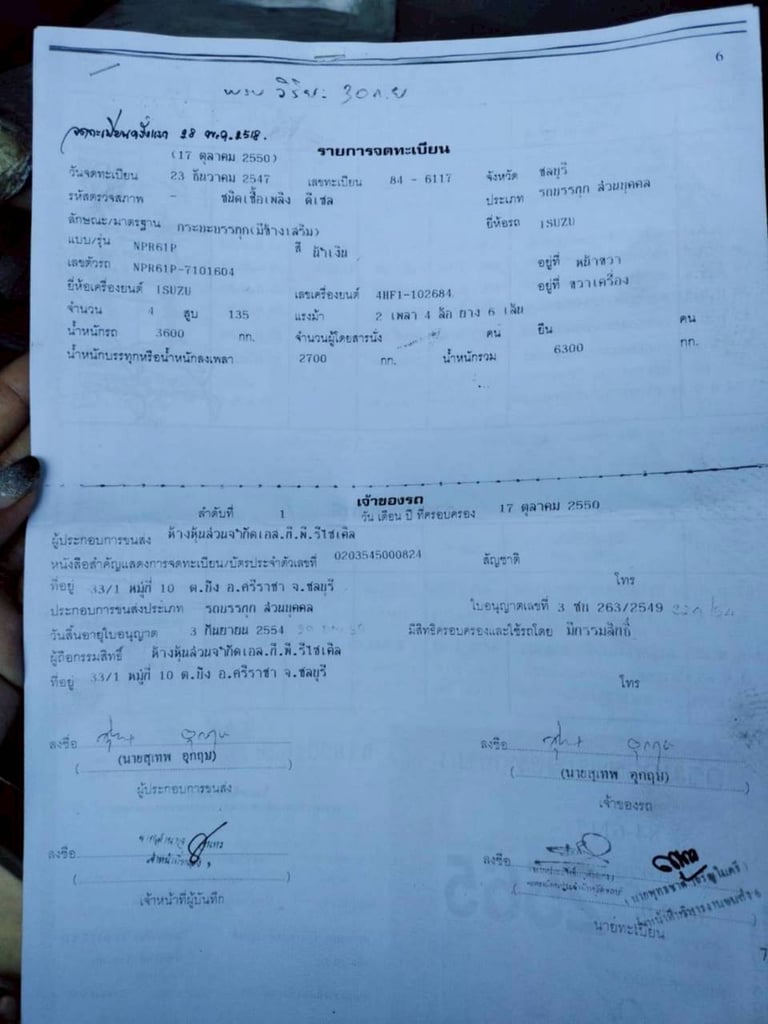 6
พรบ วิริยะ 30 ก.ย
จดทะเบียนครั้งแรก 28 พ.ค. 2518.
(17 ตุลาคม 2550) รายการจดทะเบียน
วันจดทะเบียน 23 ธันวาคม 2547 เลขทะเบียน 84 - 6117 จังหวัด ชลบุรี
รหัสตรวจสภาพ - ชนิดเชื้อเพลิง ดีเซล ประเภท รถบรรทุก ส่วนบุคคล
ลักษณะ/มาตรฐาน กระบะบรรทุก(มีข้างเสริม) ยี่ห้อรถ ISUZU
แบบ/รุ่น NPR61P สี น้ำเงิน
เลขตัวรถ NPR61P-7101604 อยู่ที่ หน้าขวา
ยี่ห้อเครื่องยนต์ ISUZU เลขเครื่องยนต์ 4HF1-102684 อยู่ที่ ขวาเครื่อง
จำนวน 4 สูบ 135 แรงม้า 2 เพลา 4 ล้อ ยาง 6 เส้น
น้ำหนักรถ 3600 กก. จำนวนผู้โดยสารนั่ง คน ยืน คน
น้ำหนักบรรทุกหรือน้ำหนักลงเพลา 2700 กก. น้ำหนักรวม 6300 กก.
เจ้าของรถ
ลำดับที่ 1 วัน เดือน ปี ที่ครอบครอง 17 ตุลาคม 2550
ผู้ประกอบการขนส่ง ห้างหุ้นส่วนจำกัดเอล.กี.พี.รีไซเคิล
หนังสือสำคัญแสดงการจดทะเบียน/บัตรประจำตัวเลขที่ 0203545000824 สัญชาติ
ที่อยู่ 33/1 หมู่ที่ 10 ต.บึง อ.ศรีราชา จ.ชลบุรี โทร
ประกอบการขนส่งประเภท รถบรรทุก ส่วนบุคคล ใบอนุญาตเลขที่ 3 ชบ 263/2549
วันสิ้นอายุใบอนุญาต 3 กันยายน 2554 มีสิทธิครอบครองและใช้รถโดย มีกรรมสิทธิ์
ผู้ถือกรรมสิทธิ์ ห้างหุ้นส่วนจำกัดเอล.กี.พี.รีไซเคิล
ที่อยู่ 33/1 หมู่ที่ 10 ต.บึง อ.ศรีราชา จ.ชลบุรี โทร
ลงชื่อ ลงชื่อ
(นายสุเทพ อุกฤษ) (นายสุเทพ อุกฤษ)
ผู้ประกอบการขนส่ง เจ้าของรถ
ลงชื่อ ลงชื่อ
เจ้าหน้าที่ผู้บันทึก นายทะเบียน
7